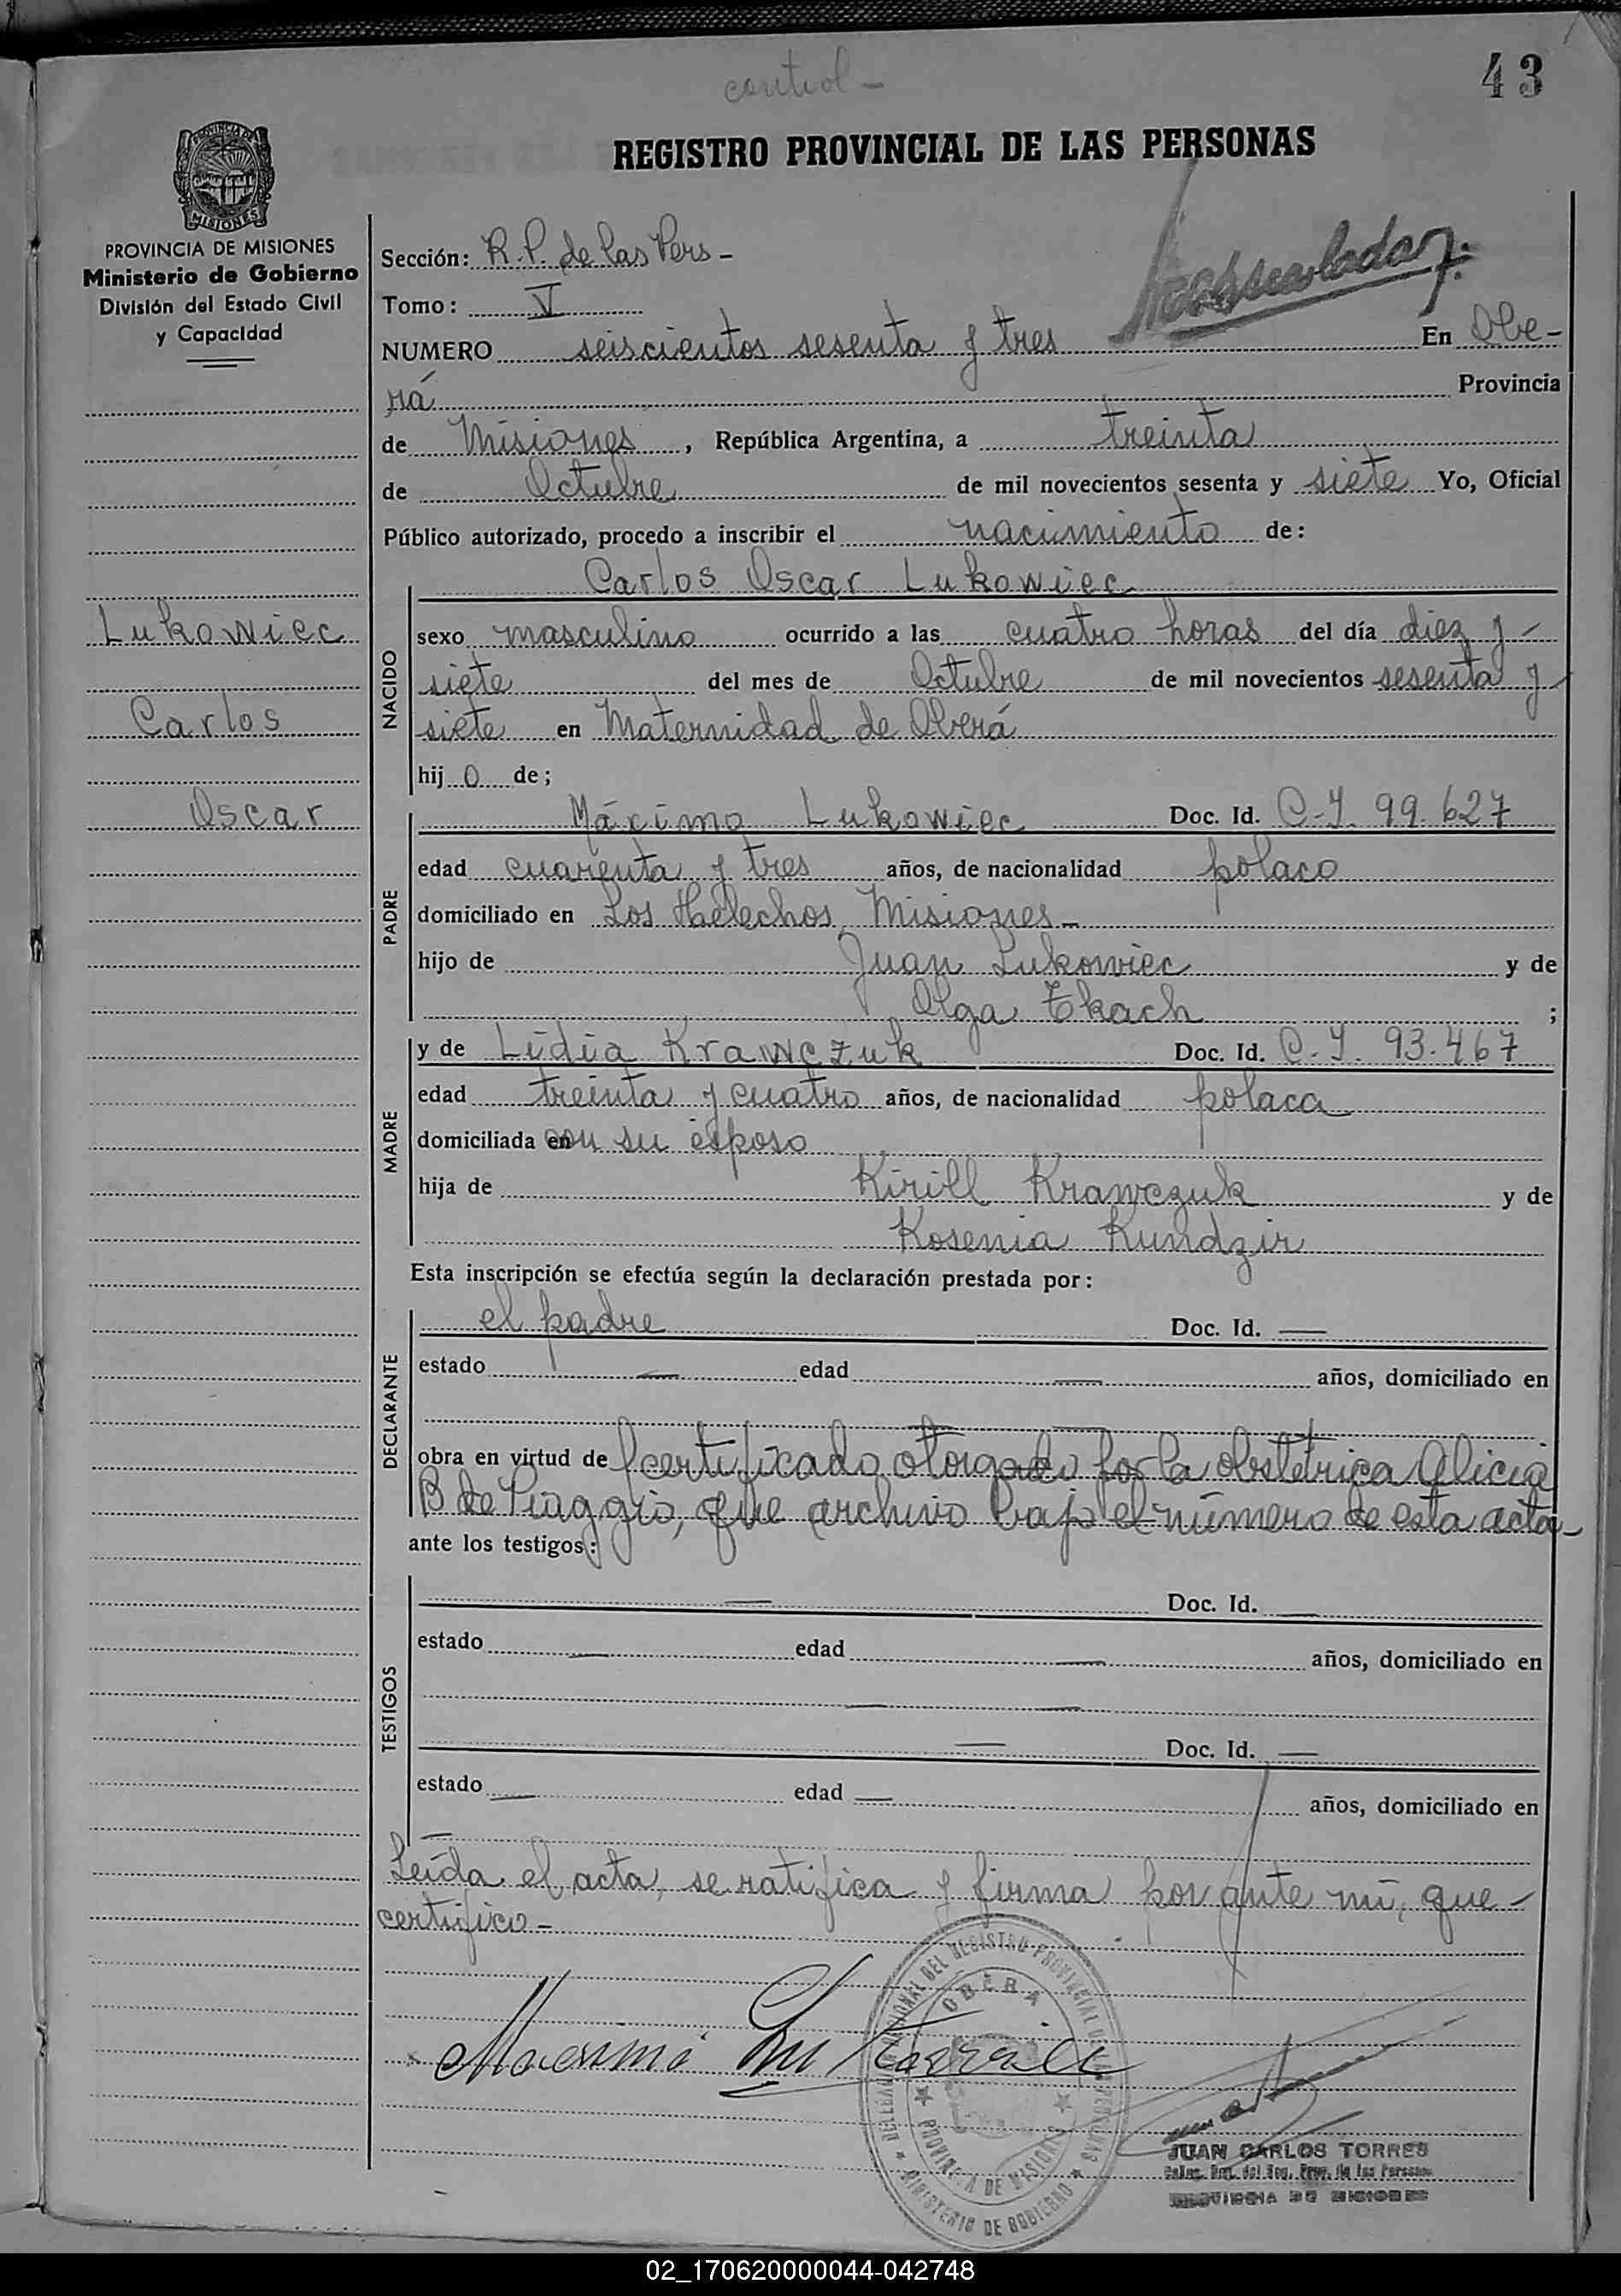 control -
43
REGISTRO PROVINCIAL DE LAS PERSONAS
PROVINCIA DE MISIONES
MISIONES
PROVINCIA DE MISIONES
Ministerio de Gobierno
División del Estado Civil
y Capacidad
Sección: R.P. de las Pers -
Tomo: V
NUMERO seiscientos sesenta y tres En Obe-
rá Provincia
de Misiones, República Argentina, a treinta
de Octubre de mil novecientos sesenta y siete Yo, Oficial
Público autorizado, procedo a inscribir el nacimiento de:
Carlos Oscar Lukowiec
Lukowiec
Carlos
Oscar
NACIDO
sexo masculino ocurrido a las cuatro horas del día diez y -
siete del mes de Octubre de mil novecientos sesenta y
siete en Maternidad de Oberá
hijo de;
PADRE
Máximo Lukowiec Doc. Id. C.I. 99.627
edad cuarenta y tres años, de nacionalidad polaco
domiciliado en Los Helechos, Misiones -
hijo de Juan Lukowiec y de
Olga Tkach ;
MADRE
y de Lidia Krawczuk Doc. Id. C.I. 93.467
edad treinta y cuatro años, de nacionalidad polaca
domiciliada en con su esposo
hija de Kirill Krawczuk y de
Kosenia Kundzir
Esta inscripción se efectúa según la declaración prestada por:
DECLARANTE
el padre Doc. Id. —
estado — edad — años, domiciliado en
obra en virtud de certificado otorgado por la obstétrica Alicia
B de Piaggio, que archivo bajo el número de esta acta -
ante los testigos:
TESTIGOS
— Doc. Id. —
estado — edad — años, domiciliado en
— —
— Doc. Id. —
estado — edad — años, domiciliado en
—
Leída el acta, se ratifica y firma por ante mí, que -
certifico -
DELEGACION REGIONAL DEL REGISTRO PROVINCIAL DE LAS PERSONAS
OBERA
PROVINCIA DE MISIONES
MINISTERIO DE GOBIERNO
JUAN CARLOS TORRES
PROVINCIA DE MISIONES
02_170620000044-042748